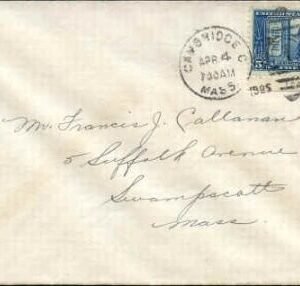 CAMBRIDGE C
APR 4
7 30 AM
1925
MASS.
Mr. Francis J. Callanan
5 Suffolk Avenue
Swampscott
Mass.